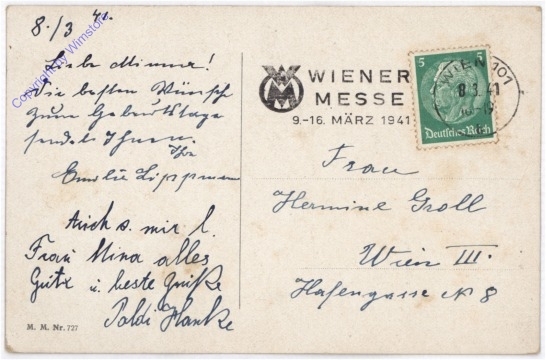 8./3 41.
Copyright by Wimstore
Liebe Minna!
Die besten Wünsche
zum Geburtstage
sendet Ihnen
Ihre
Emilie Lippmann
Auch v. mir l.
Frau Mina alles
Gute u. beste Grüße
Poldi Hanke
M. M. Nr. 727
WIENER
MESSE
9.-16. MÄRZ 1941
5
Deutsches Reich
WIEN 101
8.3.41
Frau
Hermine Groll
Wien III.
Hafengasse № 8